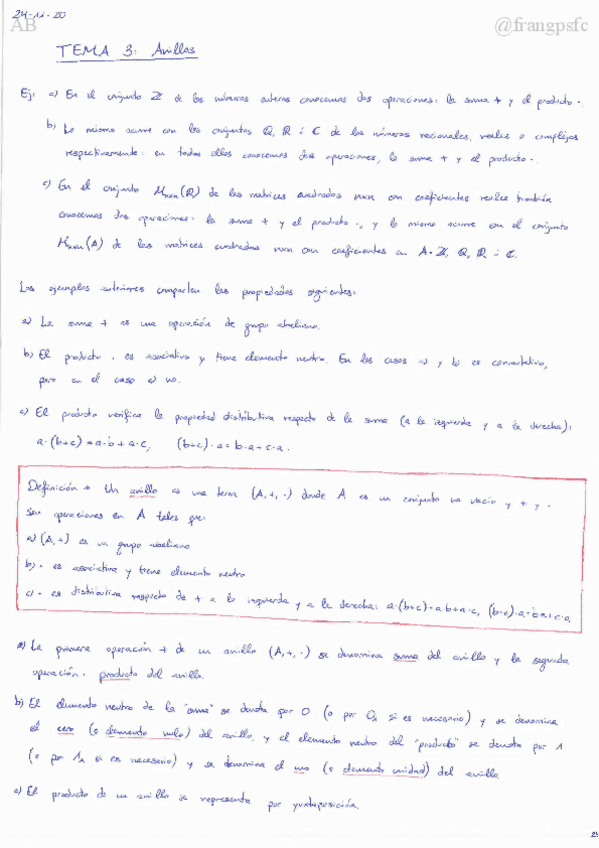 24-11-20
AB
@frangpsfc
TEMA 3: Anillos
Ej: a) En el conjunto ℤ de los números enteros conocemos dos operaciones: la suma + y el producto ·.
b) Lo mismo ocurre con los conjuntos ℚ, ℝ ó ℂ de los números racionales, reales o complejos
respectivamente: en todos ellos conocemos dos operaciones, la suma + y el producto ·.
c) En el conjunto Mnxn(ℝ) de las matrices cuadradas nxn con coeficientes reales también
conocemos dos operaciones: la suma + y el producto ·, y lo mismo ocurre con el conjunto
Mnxn(A) de las matrices cuadradas nxn con coeficientes en A=ℤ, ℚ, ℝ ó ℂ.
Los ejemplos anteriores comparten las propiedades siguientes:
a) La suma + es una operación de grupo abeliano.
b) El producto · es asociativo y tiene elemento neutro. En los casos a) y b) es conmutativo,
pero en el caso c) no.
c) El producto verifica la propiedad distributiva respecto de la suma (a la izquierda y a la derecha):
a·(b+c)=a·b+a·c, (b+c)·a=b·a+c·a.
Definición * Un anillo es una terna (A,+,·) donde A es un conjunto no vacío y + y ·
son operaciones en A tales que:
a) (A,+) es un grupo abeliano
b) · es asociativa y tiene elemento neutro
c) · es distributiva respecto de + a la izquierda y a la derecha: a·(b+c)=a·b+a·c, (b+c)·a=b·a+c·a
a) La primera operación + de un anillo (A,+,·) se denomina suma del anillo y la segunda
operación · producto del anillo.
b) El elemento neutro de la "suma" se denota por 0 (o por 0A si es necesario) y se denomina
el cero (o elemento nulo) del anillo, y el elemento neutro del "producto" se denota por 1
(o por 1A si es necesario) y se denomina el uno (o elemento unidad) del anillo
c) El producto de un anillo se representa por yuxtaposición.